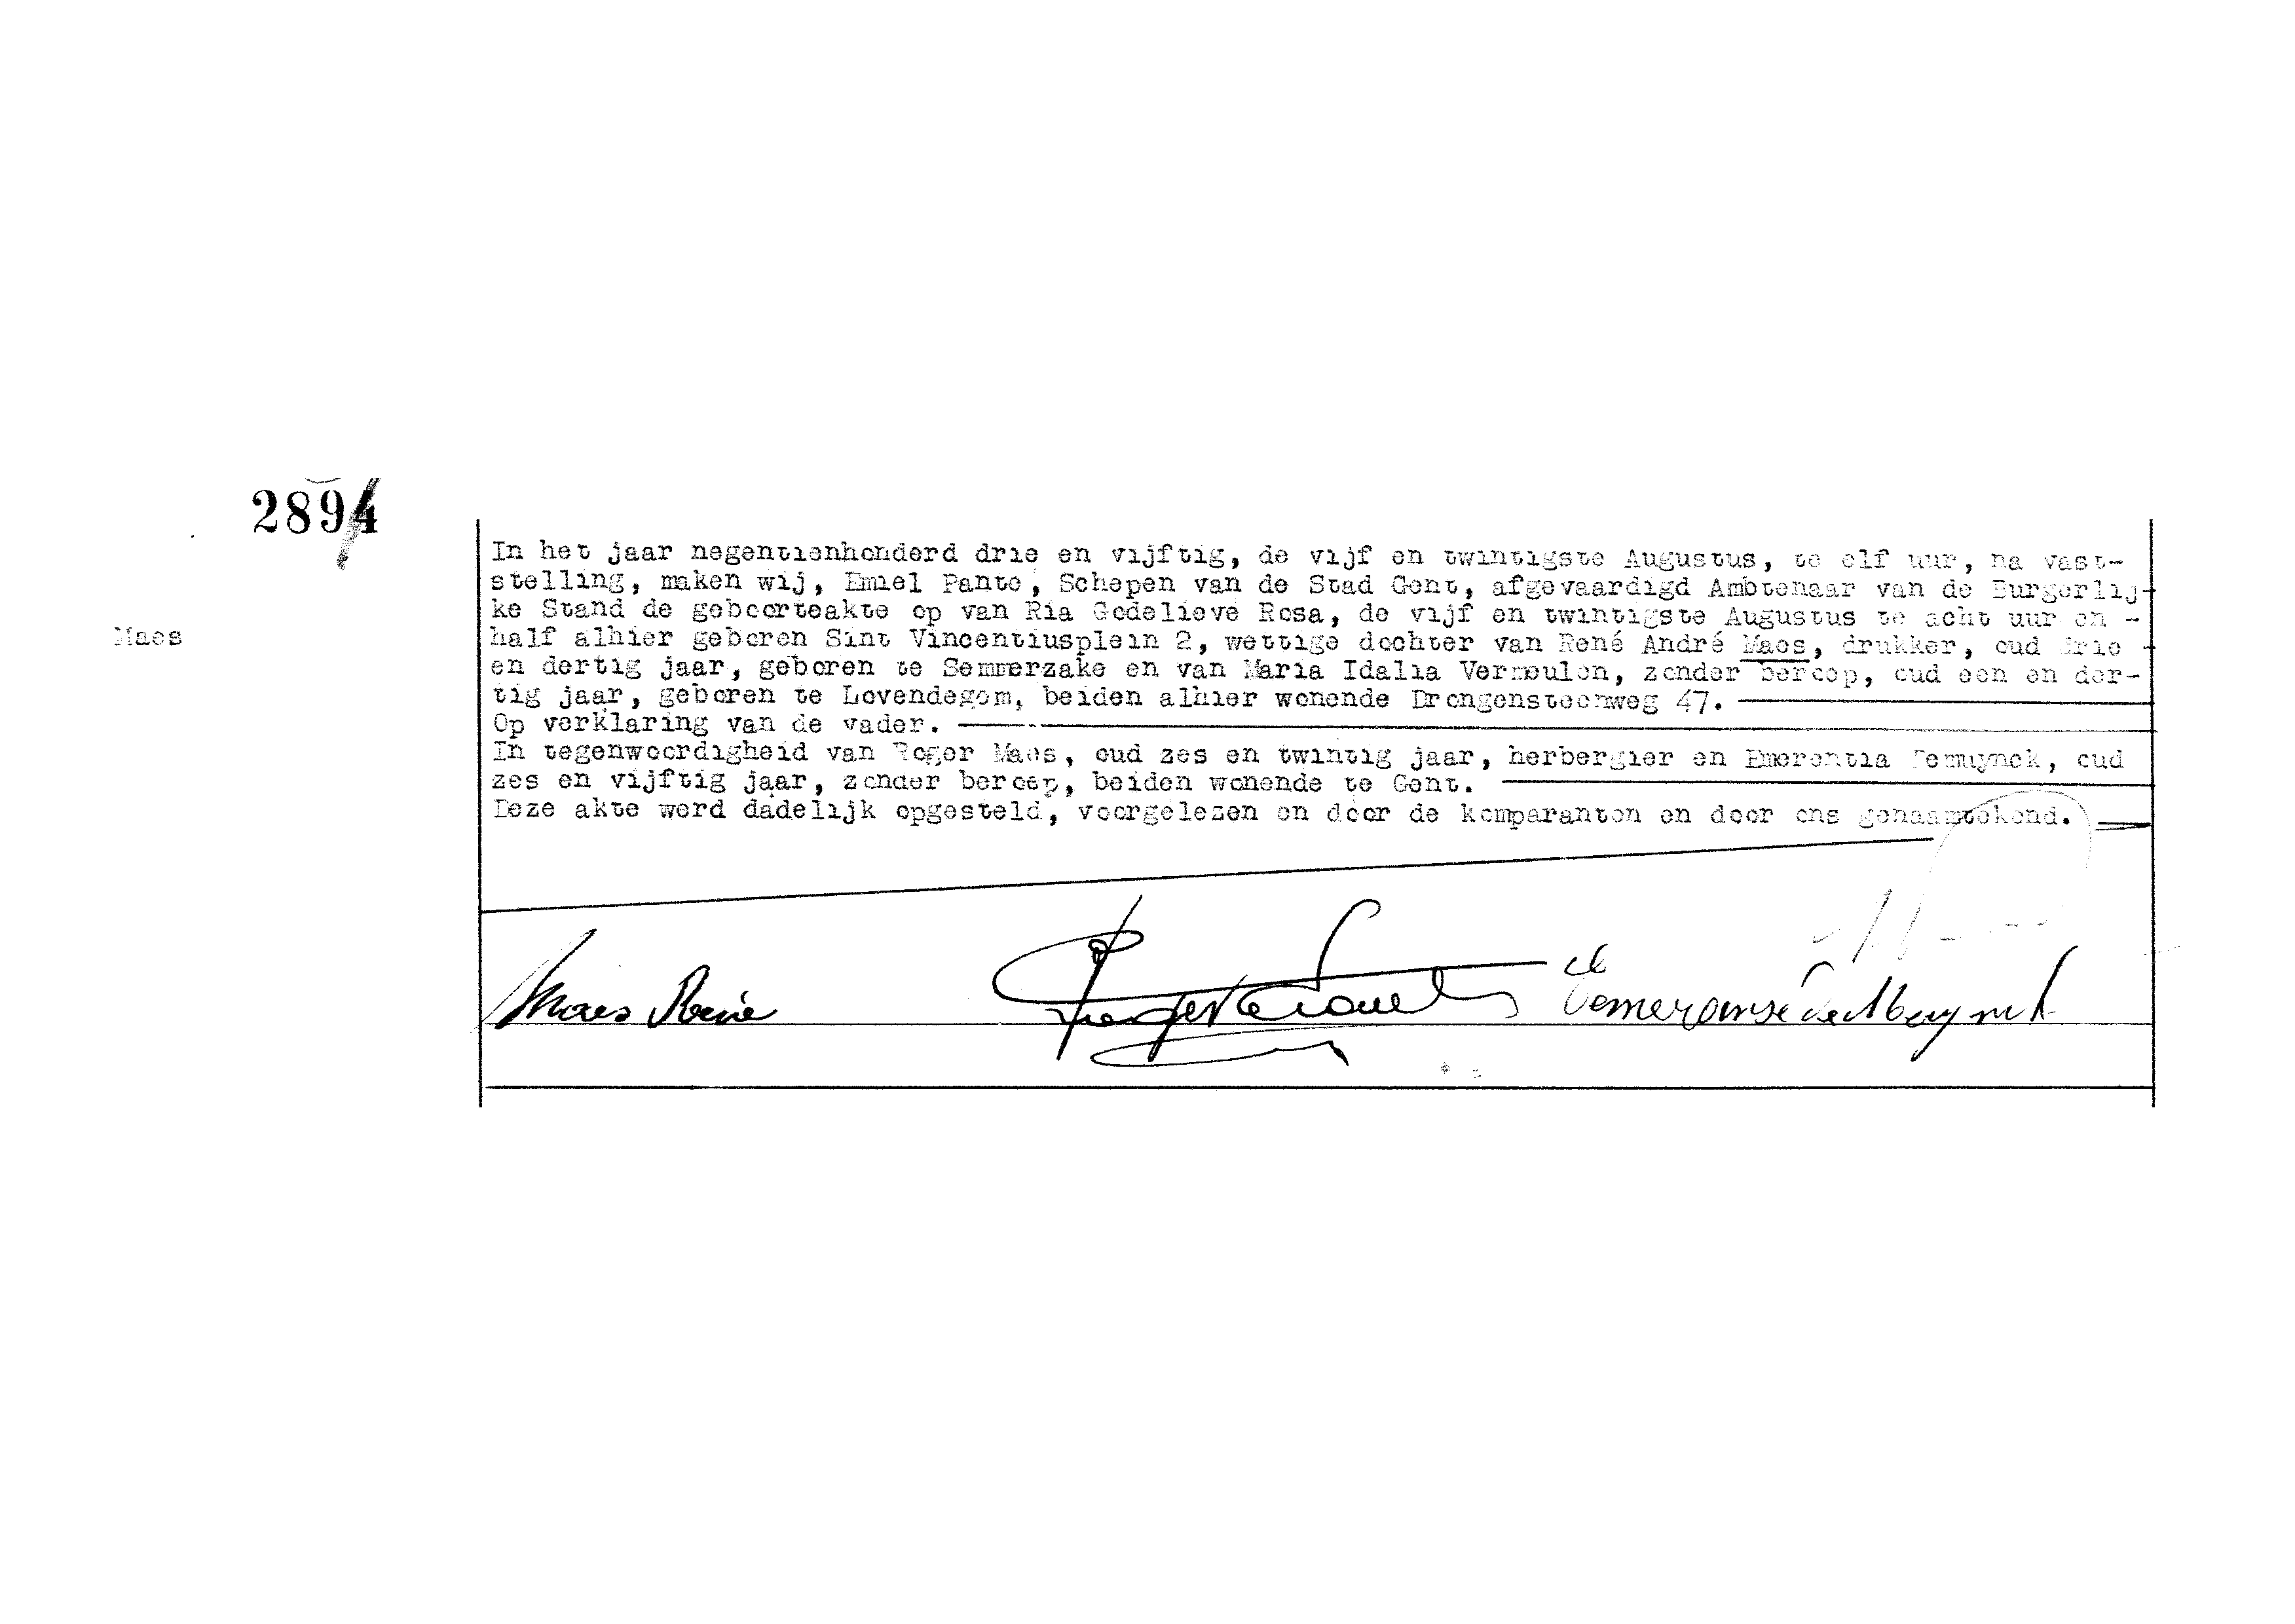 2894
In het jaar negentienhonderd drie en vijftig, de vijf en twintigste Augustus, te elf uur, na vast-
stelling, maken wij, Emiel Pante, Schepen van de Stad Gent, afgevaardigd Ambtenaar van de Burgerlij-
ke Stand de geboorteakte op van Ria Godelieve Rosa, de vijf en twintigste Augustus te acht uur en -
Maes
half alhier geboren Sint Vincentiusplein 2, wettige dochter van René André Maes, drukker, oud drie -
en dertig jaar, geboren te Semmerzake en van Maria Idalia Vermeulen, zonder beroep, oud een en der-
tig jaar, geboren te Lovendegem, beiden alhier wonende Drongensteenweg 47.
Op verklaring van de vader.
In tegenwoordigheid van Roger Maes, oud zes en twintig jaar, herbergier en Emerentia Demuynck, oud
zes en vijftig jaar, zonder beroep, beiden wonende te Gent.
Deze akte werd dadelijk opgesteld, voorgelezen en door de komparanten en door ons genaamtekend.
Maes René